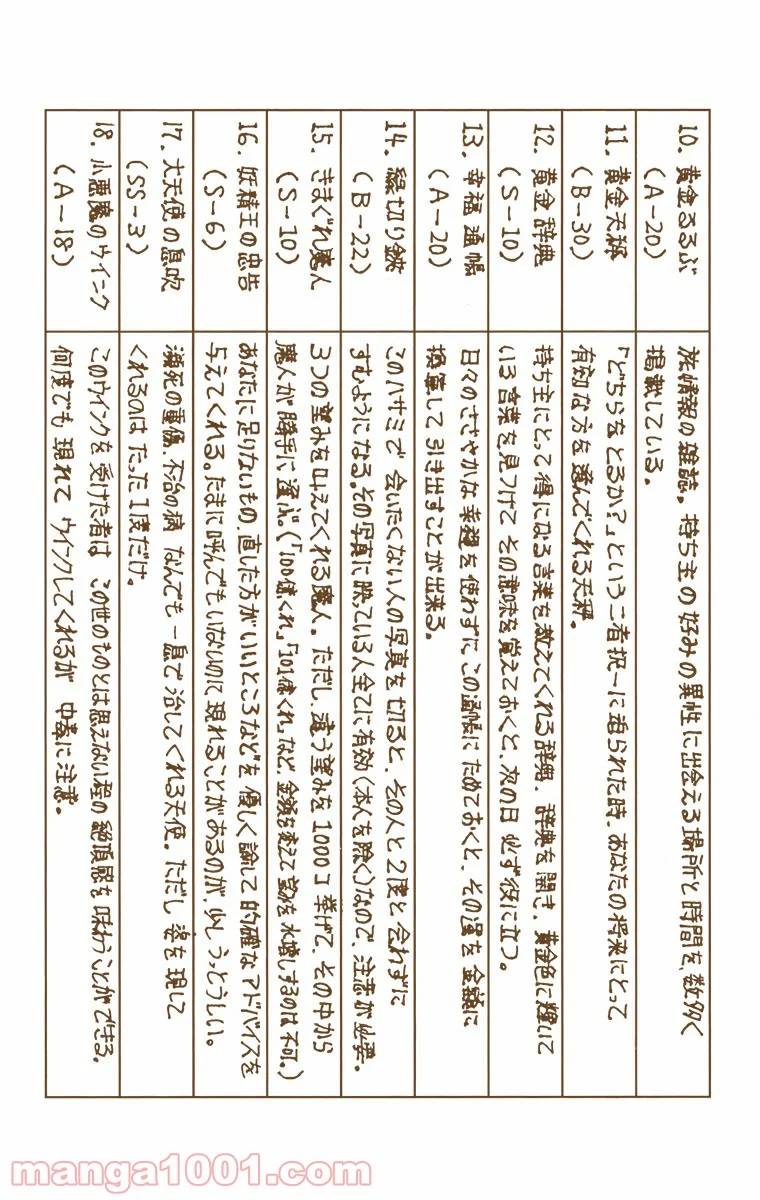 10. 黄金るるぶ
(A-20)
旅情報の雑誌。持ち主の好みの異性に出会える場所と時間を、数多く
掲載している。
11. 黄金天秤
(B-30)
「どちらをとるか?」という二者択一に迫られた時、あなたの将来にとって
有効な方を選んでくれる天秤。
12. 黄金辞典
(S-10)
持ち主にとって得になる言葉を教えてくれる辞典。辞典を開き、黄金色に輝いて
いる言葉を見つけて その意味を覚えておくと、次の日 必ず役に立つ。
13. 幸福通帳
(A-20)
日々のささやかな幸福を使わずに この通帳に ためておくと、その運を 金額に
換算して 引き出すことが出来る。
14. 縁切り鋏
(B-22)
このハサミで 会いたくない人の写真を切ると、その人と2度と会わずに
すむようになる。その写真に映っている人全てに有効(本人を除く)なので、注意が必要。
15. きまぐれ魔人
(S-10)
3つの望みを叶えてくれる魔人。ただし、違う望みを1000コ挙げて、その中から
魔人が勝手に選ぶ。(「100億くれ」「101億くれ」など、金額を変えて望みを水増しするのは不可。)
16. 妖精王の忠告
(S-6)
あなたに足りないもの、直した方がいいところなどを 優しく諭して 的確なアドバイスを
与えてくれる。たまに呼んでもいないのに現れることがあるのが、少しうっとうしい。
17. 大天使の息吹
(SS-3)
瀕死の重傷、不治の病 なんでも一息で治してくれる天使。ただし 姿を現して
くれるのは たった1度だけ。
18. 小悪魔のウインク
(A-18)
このウインクを受けた者は この世のものとは思えない程の絶頂感を味わうことができる。
何度でも 現れて ウインクしてくれるが 中毒に注意。
manga1001.com